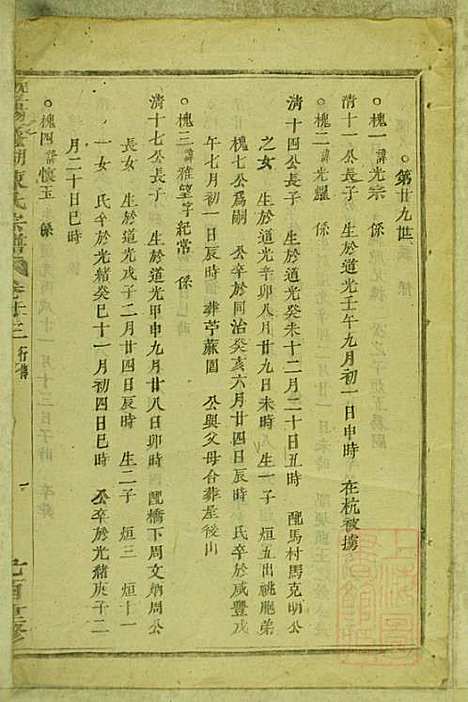 ○第廿九世
○槐一諱光宗　係
清十一公長子　生於道光壬午九月初一日申時　在杭被擄
○槐二諱光耀　係
清十四公長子　生於道光癸未十二月二十日丑時　配馬村馬克明公
之女　生於道光辛卯八月廿九日未時　生一子　烜五出祧胞弟
槐七公爲嗣　公卒於同治癸亥六月廿四日辰時　氏卒於咸豐戊
午七月初一日辰時　葬苧蔴園　公與父母合葬屋後山
○槐三諱雅望字紀常　係
清十七公長子　生於道光甲申九月廿八日卯時　配橋下周文炳周公
長女　生於道光戊子二月廿四日辰時　生二子　烜三　烜十一
一女　氏卒於光緒癸巳十一月初四日巳時　公卒於光緒庚子二
月二十日巳時
○槐四諱懷玉　係
宗譜
行傳
一